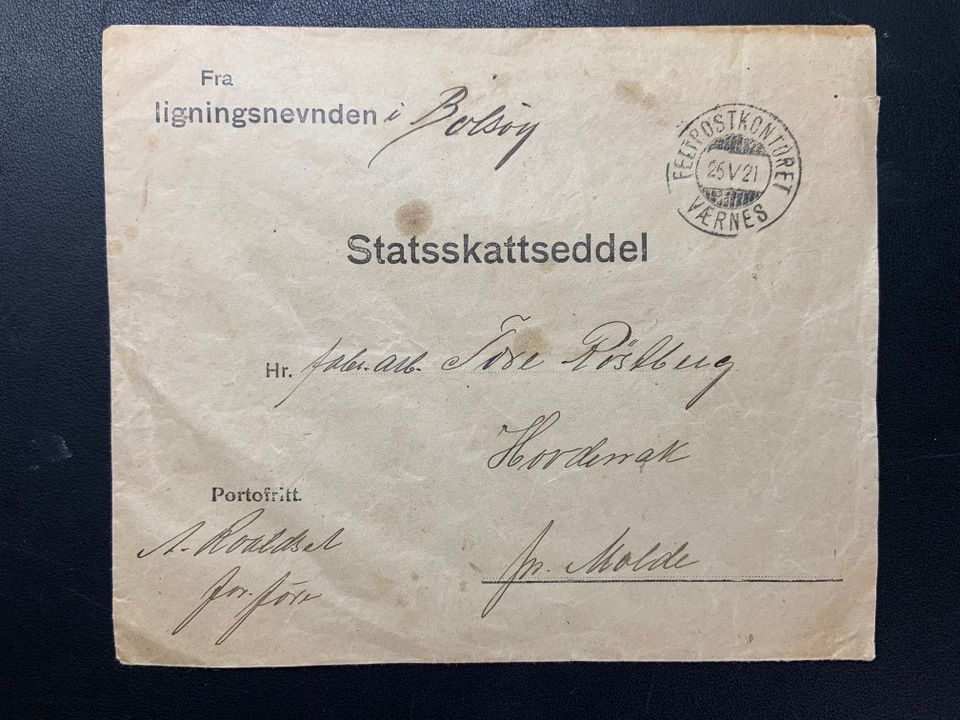 Fra
ligningsnevnden i Bolsöy
FELTPOSTKONTORET
25 V 21
VÆRNES
Statsskattseddel
Hr. fabr.arb. Tore Röstberg
Hovdenak
Portofritt.
A. Roaldset
pr. Molde